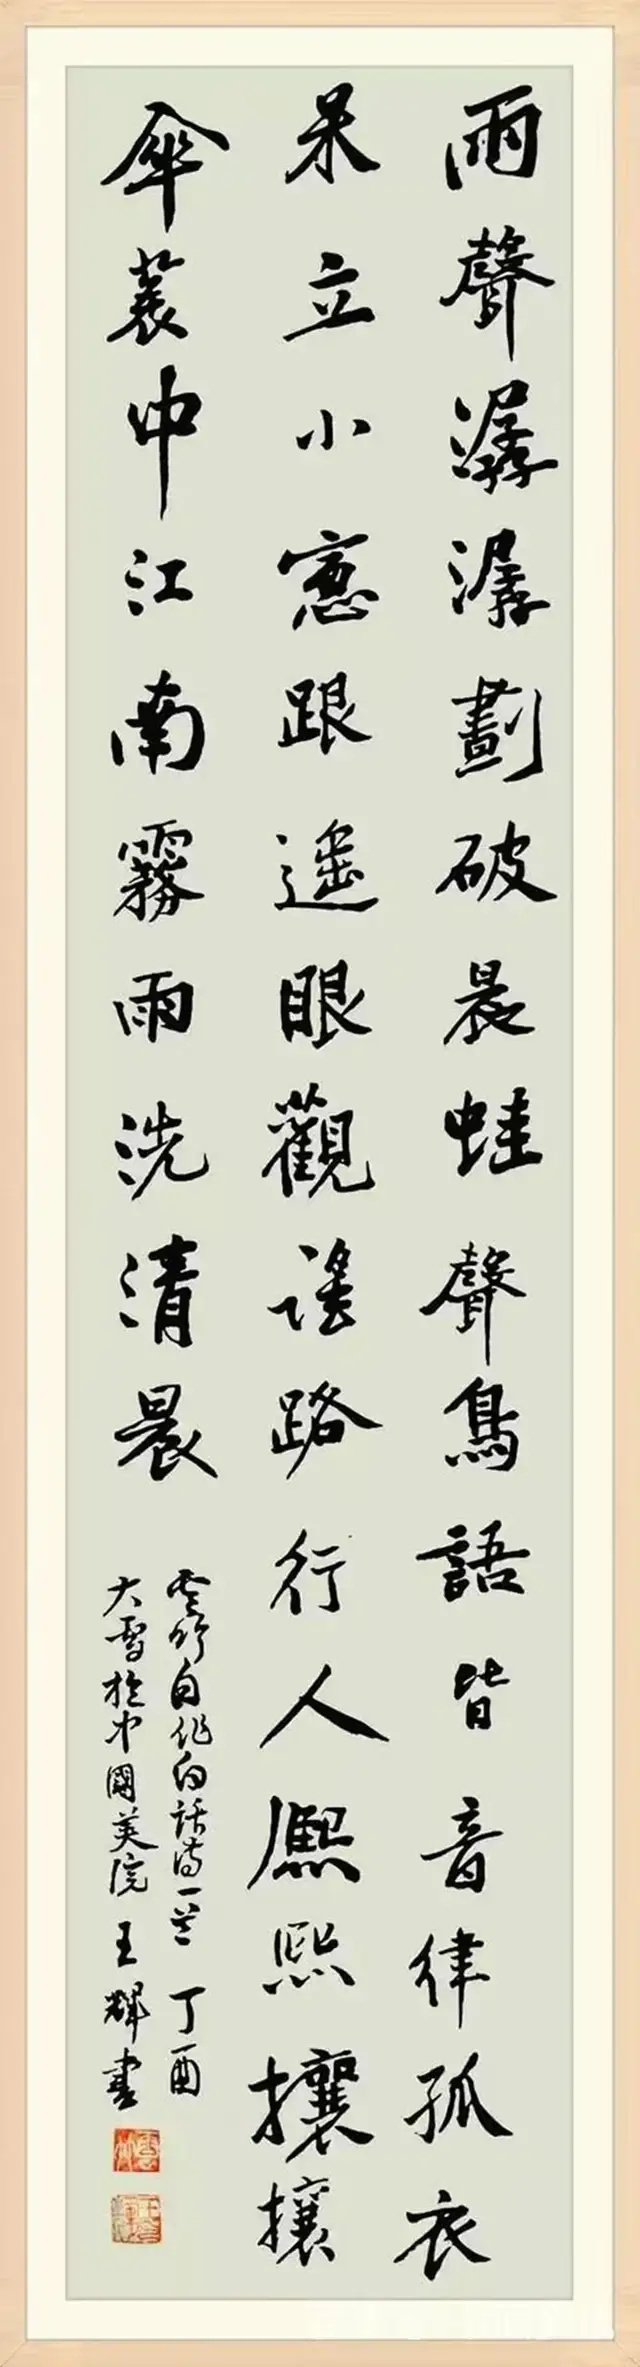 雨聲潺潺劃破晨蛙聲鳥語皆音律孤衣
呆立小窓跟遥眼觀谣路行人熙熙攘攘
傘蓑中江南霧雨洗清晨
雲竹自作白話詩一首 丁酉
大雪於中國美院 王輝書